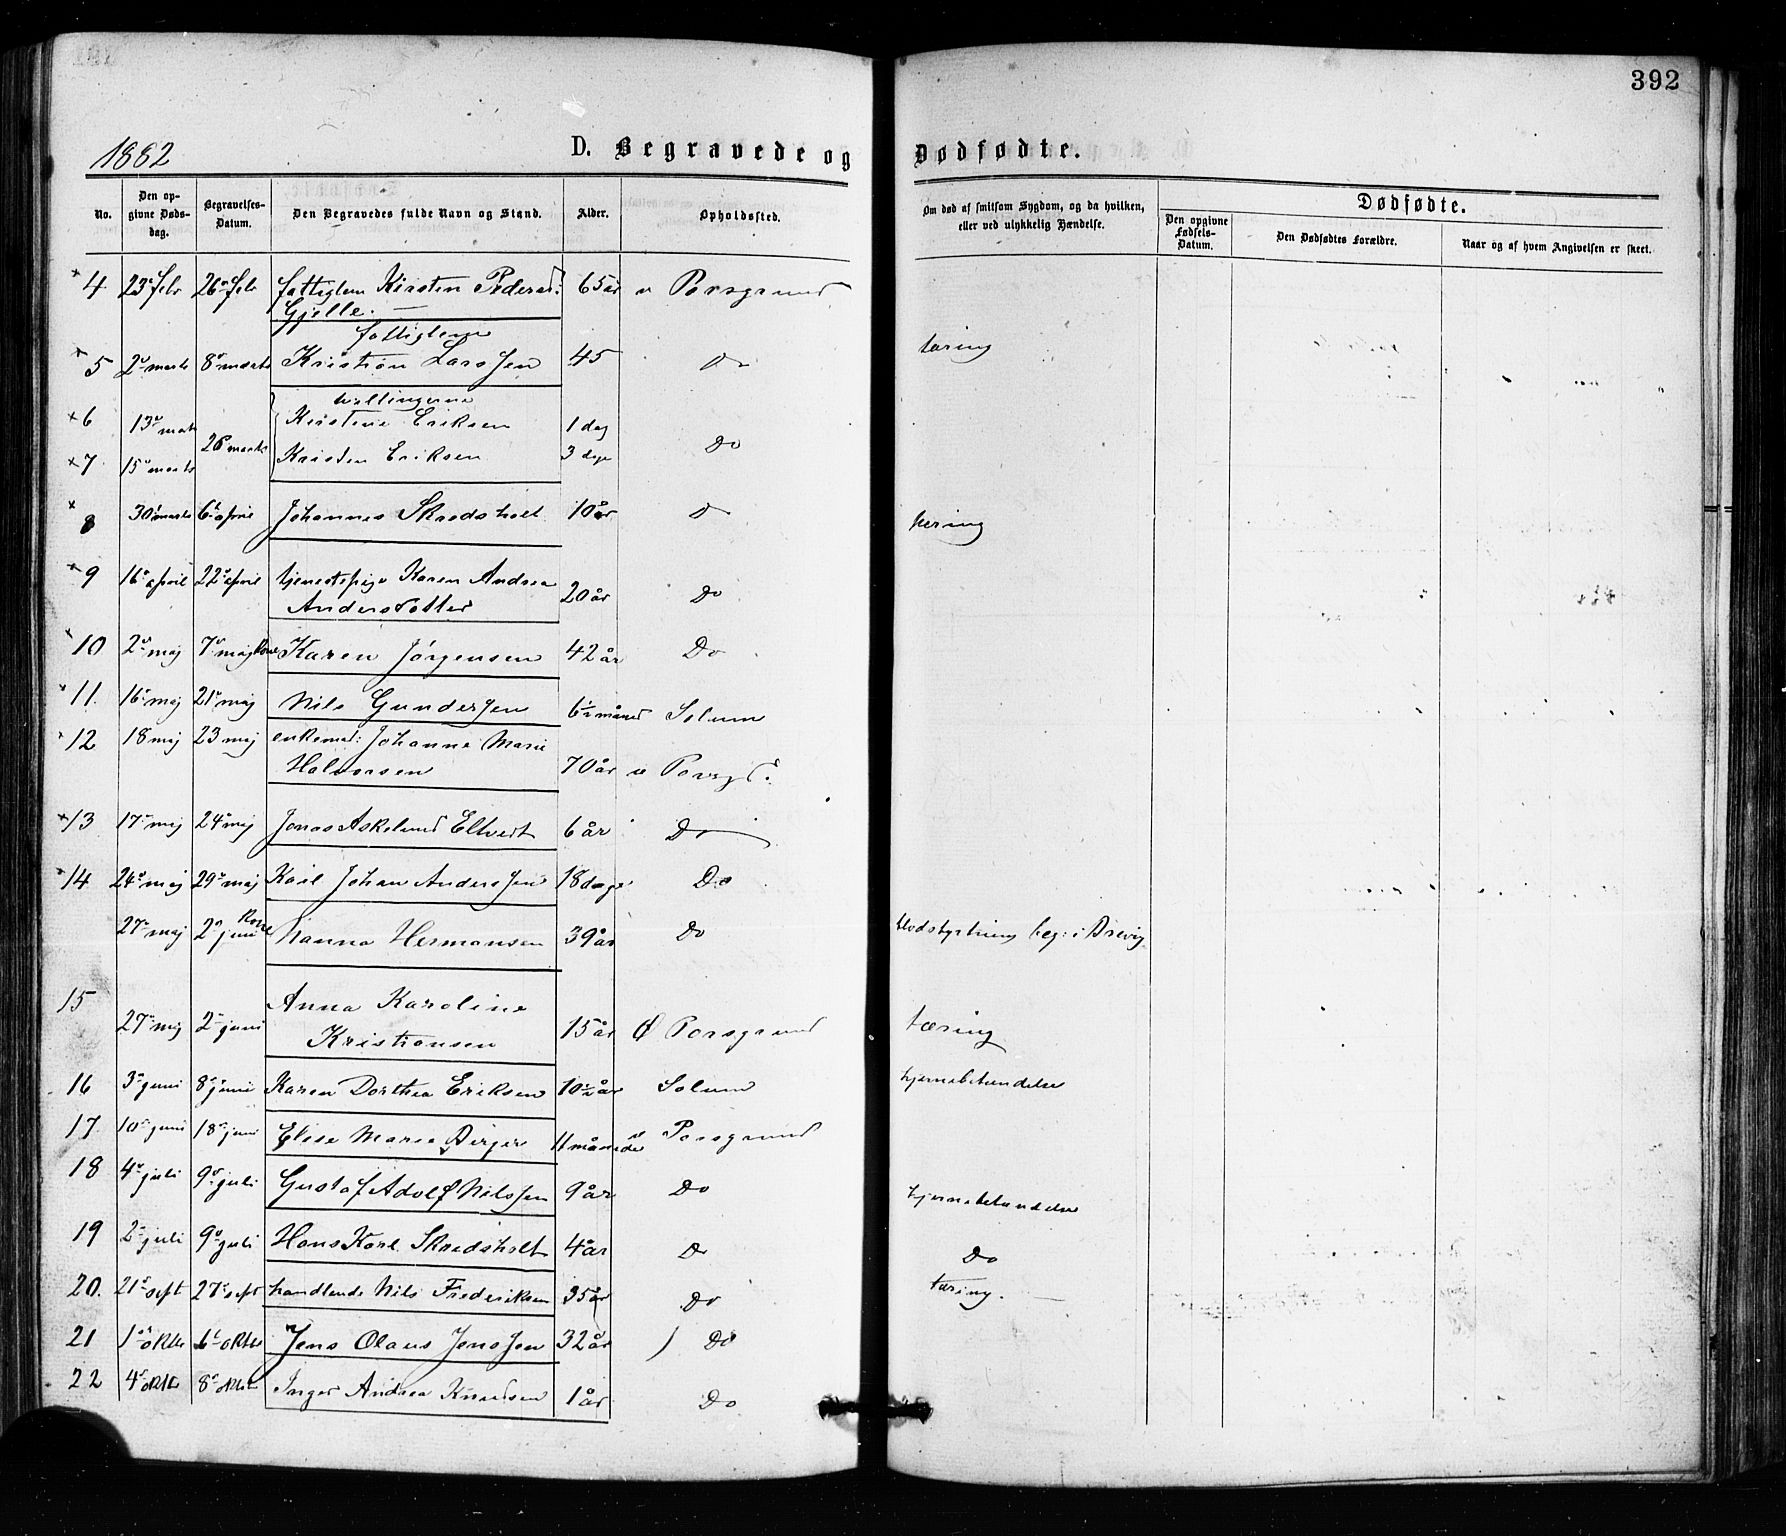 392
1882
D. Begravede og Dødfødte.
No.
Den opgivne Døds-dag.
Begravelses-Datum.
Den Begravedes fulde Navn og Stand.
Alder.
Opholdssted.
Om død af smitsom Sygdom, og da hvilken, eller ved ulykkelig Hændelse.
Dødfødte.
Den opgivne Fødsels-Datum.
Den Dødfødtes Forældre.
Naar og af hvem Angivelsen er skeet.
4 23 febr 26 febr fattiglem Kirsten Peders: 65 år v Porsgrund
Gjelle.
fattiglem
5 2 marts 8 marts Kristian Larssen 45 Do tæring
tvillingerne
6 13 marts Kirstine Eriksen 1 dag
26 marts Do
7 15 marts Kristen Eriksen 3 dage
8 30 marts 6 april Johannes Skredsholt 10 år Do tæring
9 16 april 22 april tjenestepige Karen Andrea
Andersdatter 20 år Do
10 2 maj 7 maj Kone Karen Jörgensen 42 år Do
11. 16 maj 21 maj Nils Gunderssen 6½ måned Solum
12 18 maj 23 maj enkemad: Johanne Marie
Halvorsen 70 år v Porsgd.
13 17 maj 24 maj Jonas Askelund Eltvedt 6 år Do
14 24 maj 29 maj Karl Johan Anderssen 18 dage Do
27 maj 2 juni Kone Hanna Hermansen 39 år Do blodstyrtning beg: i Brevig
15 Anna Karoline
27 maj 2 juni Kristiansen 15 år Ø Porsgrund tæring
16 3 juni 8 juni Karen Dorthea Eriksen 10½ år Solum hjernebetændelse
17. 10 juni 18 juni Elise Marie Birger 11 måneder v Porsgrund
18 4 juli 9 juli Gustaf Adolf Nilssen 9 år Do hjernebetændelse
19 2 juli 9 juli Hans Karl Skredsholt 4 år Do Do
20. 21 sept 27 sept handlende Nils Frederiksen 35 år Do tæring.
21 1 oktbr 6 oktbr Jens Olaus Jenssen 32 år Do
22 4 oktbr 8 oktbr Inger Andrea Knudsen 1 år Do